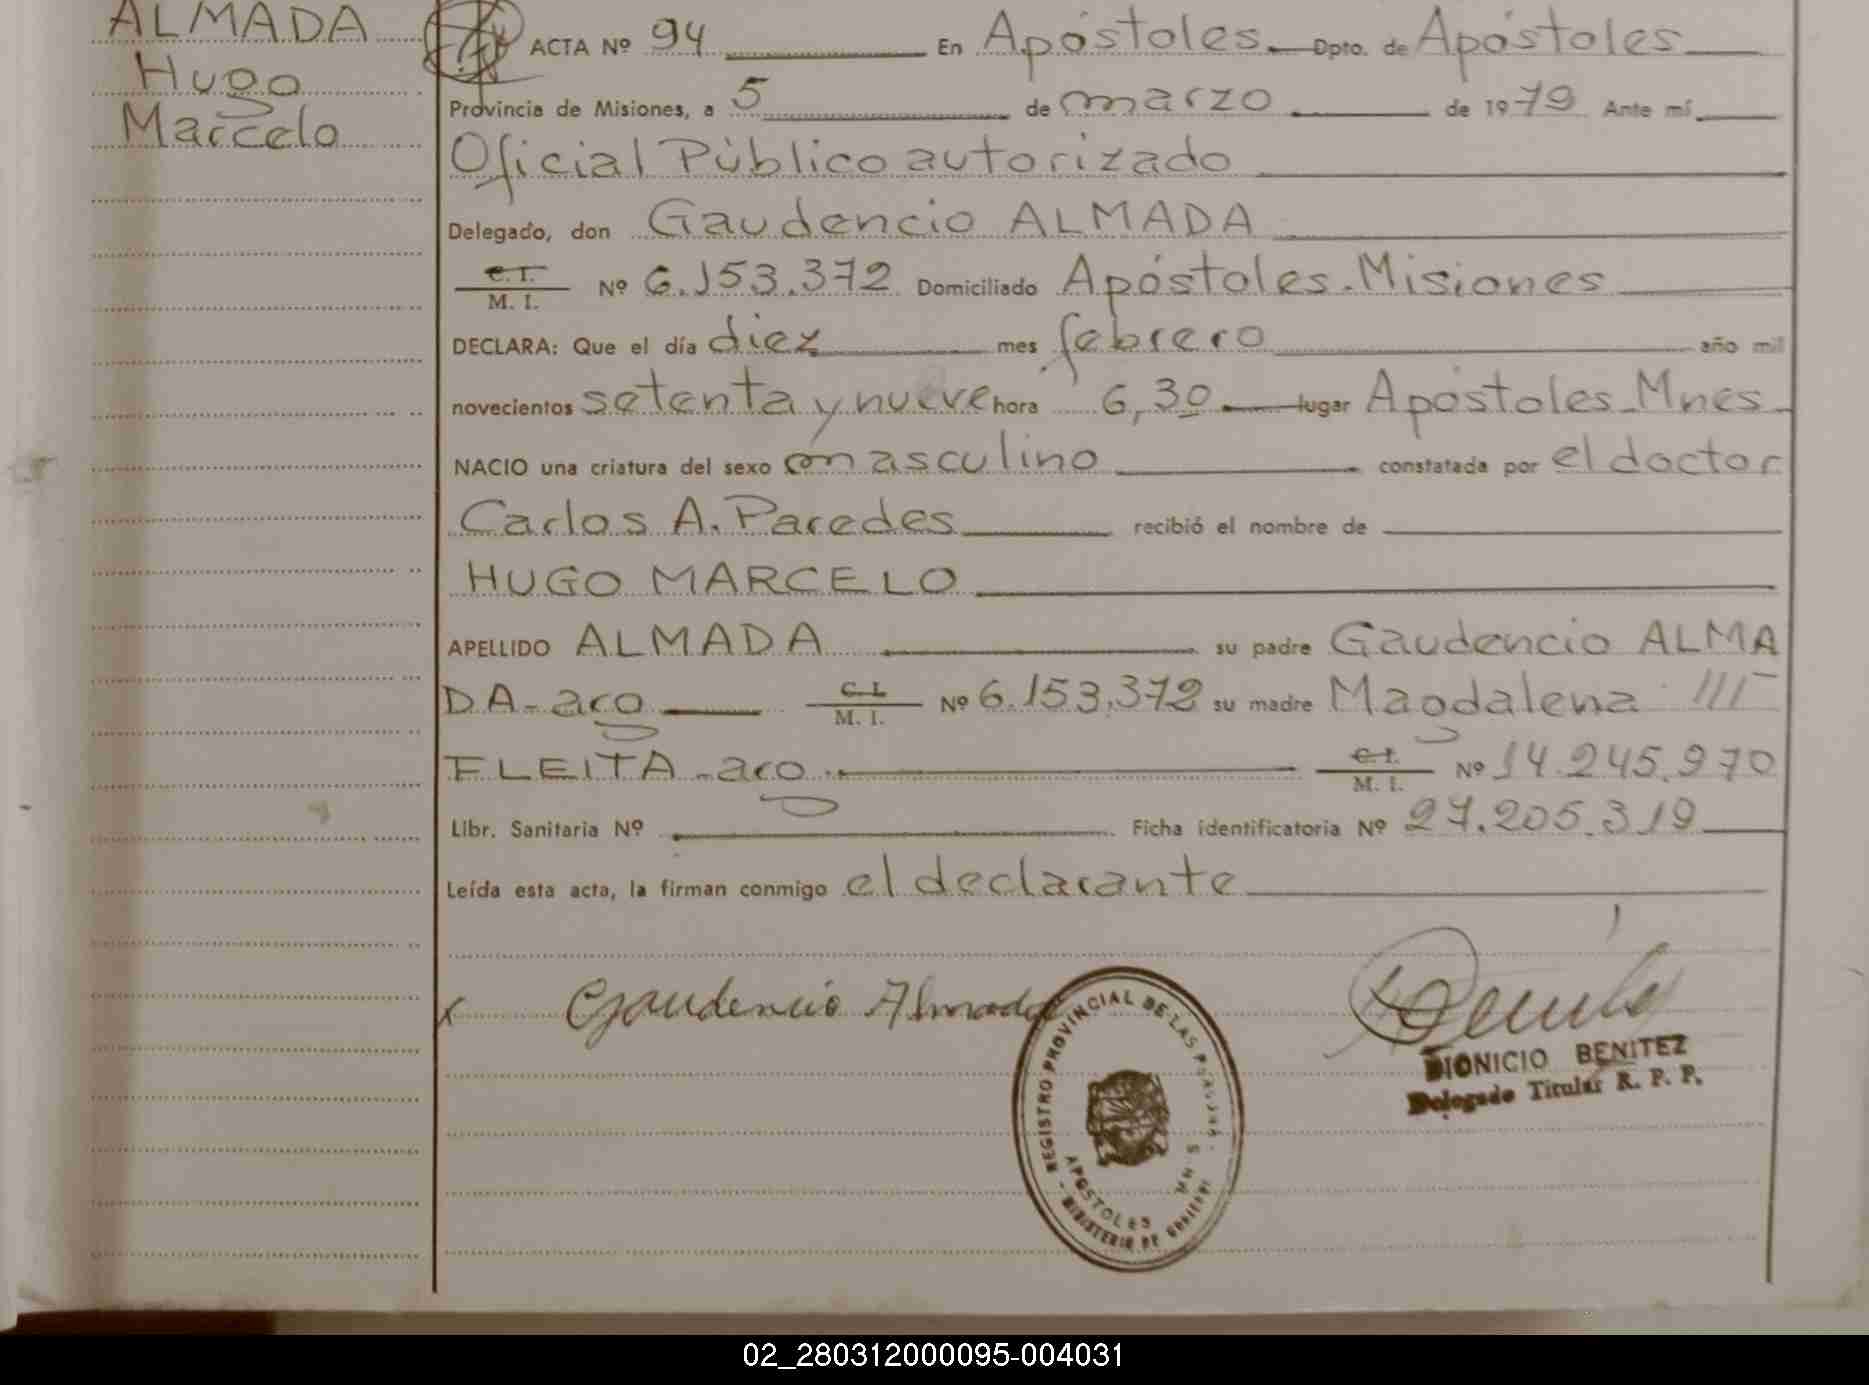 ALMADA
Hugo
Marcelo
ACTA Nº 94 En Apóstoles Dpto. de Apóstoles
Provincia de Misiones, a 5 de marzo de 1979 Ante mí
Oficial Público autorizado
Delegado, don Gaudencio ALMADA
C.I. M. I. Nº 6.153.372 Domiciliado Apóstoles.Misiones
DECLARA: Que el día diez mes febrero año mil
novecientos setenta y nueve hora 6,30 lugar Apóstoles-Mnes
NACIO una criatura del sexo masculino constatada por el doctor
Carlos A. Paredes recibió el nombre de
HUGO MARCELO
APELLIDO ALMADA su padre Gaudencio ALMA
DA-arg C.I. M. I. Nº 6.153.372 su madre Magdalena
FLEITA-arg. C.I. M. I. Nº 14.245.970
Libr. Sanitaria Nº Ficha identificatoria Nº 27.205.319
Leída esta acta, la firman conmigo el declarante
x Gaudencio Almada
REGISTRO PROVINCIAL DE LAS PERSONAS
APOSTOLES
MINISTERIO DE GOBIERNO
DIONICIO BENITEZ
Delegado Titular R. P. P.
02_280312000095-004031